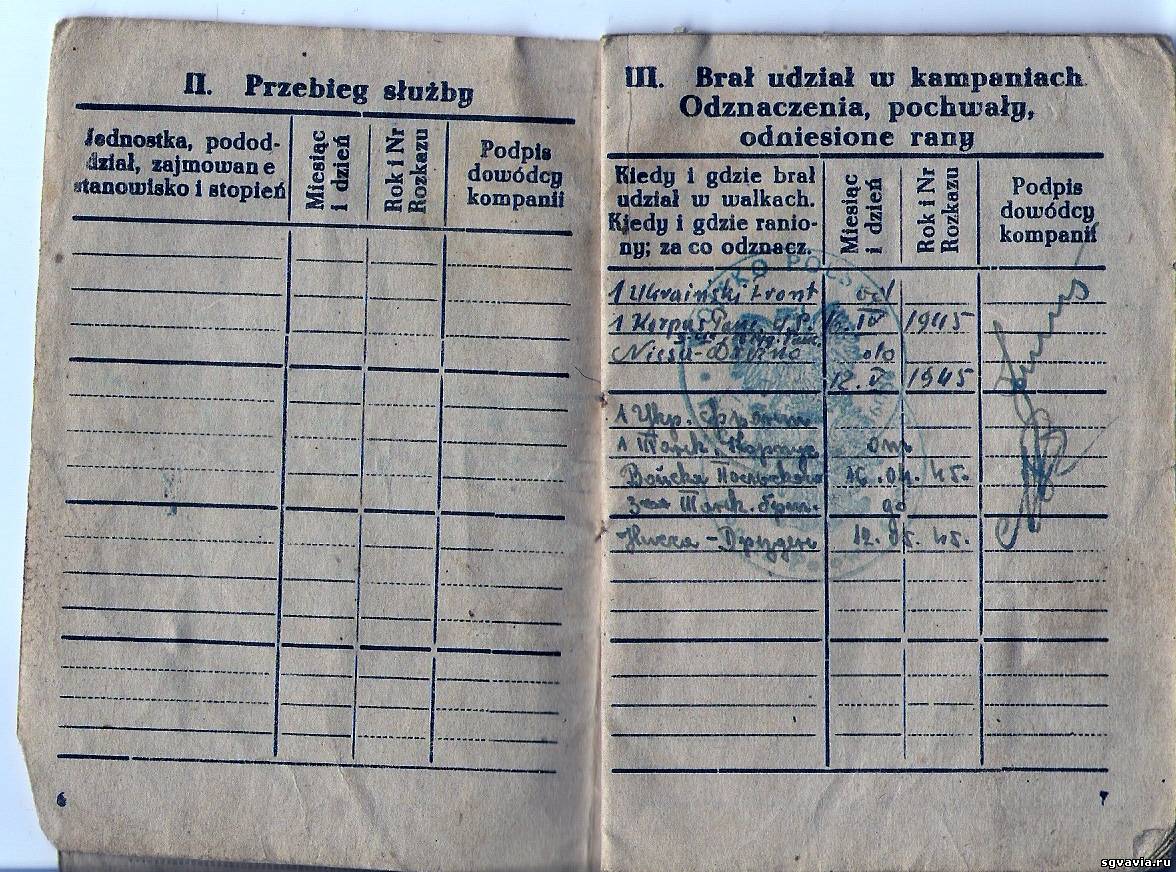 II. Przebieg służby
Jednostka, podod-
dział, zajmowane
stanowisko i stopień
Miesiąc
i dzień
Rok i Nr
Rozkazu
Podpis
dowódcy
kompanii
6
III. Brał udział w kampaniach
Odznaczenia, pochwały,
odniesione rany
Kiedy i gdzie brał
udział w walkach.
Kiedy i gdzie ranio-
ny; za co odznacz.
Miesiąc
i dzień
Rok i Nr
Rozkazu
Podpis
dowódcy
kompanii
1 Ukraiński front od
1 Korpus Panc. W.P. 16.IV 1945
Nissa-Drezno do
12.V 1945
1 Укр. Фронт
1 Танк. Корпус от
Войска 16.04.45.
Танк. до
12.05.45.
7
sgvavia.ru